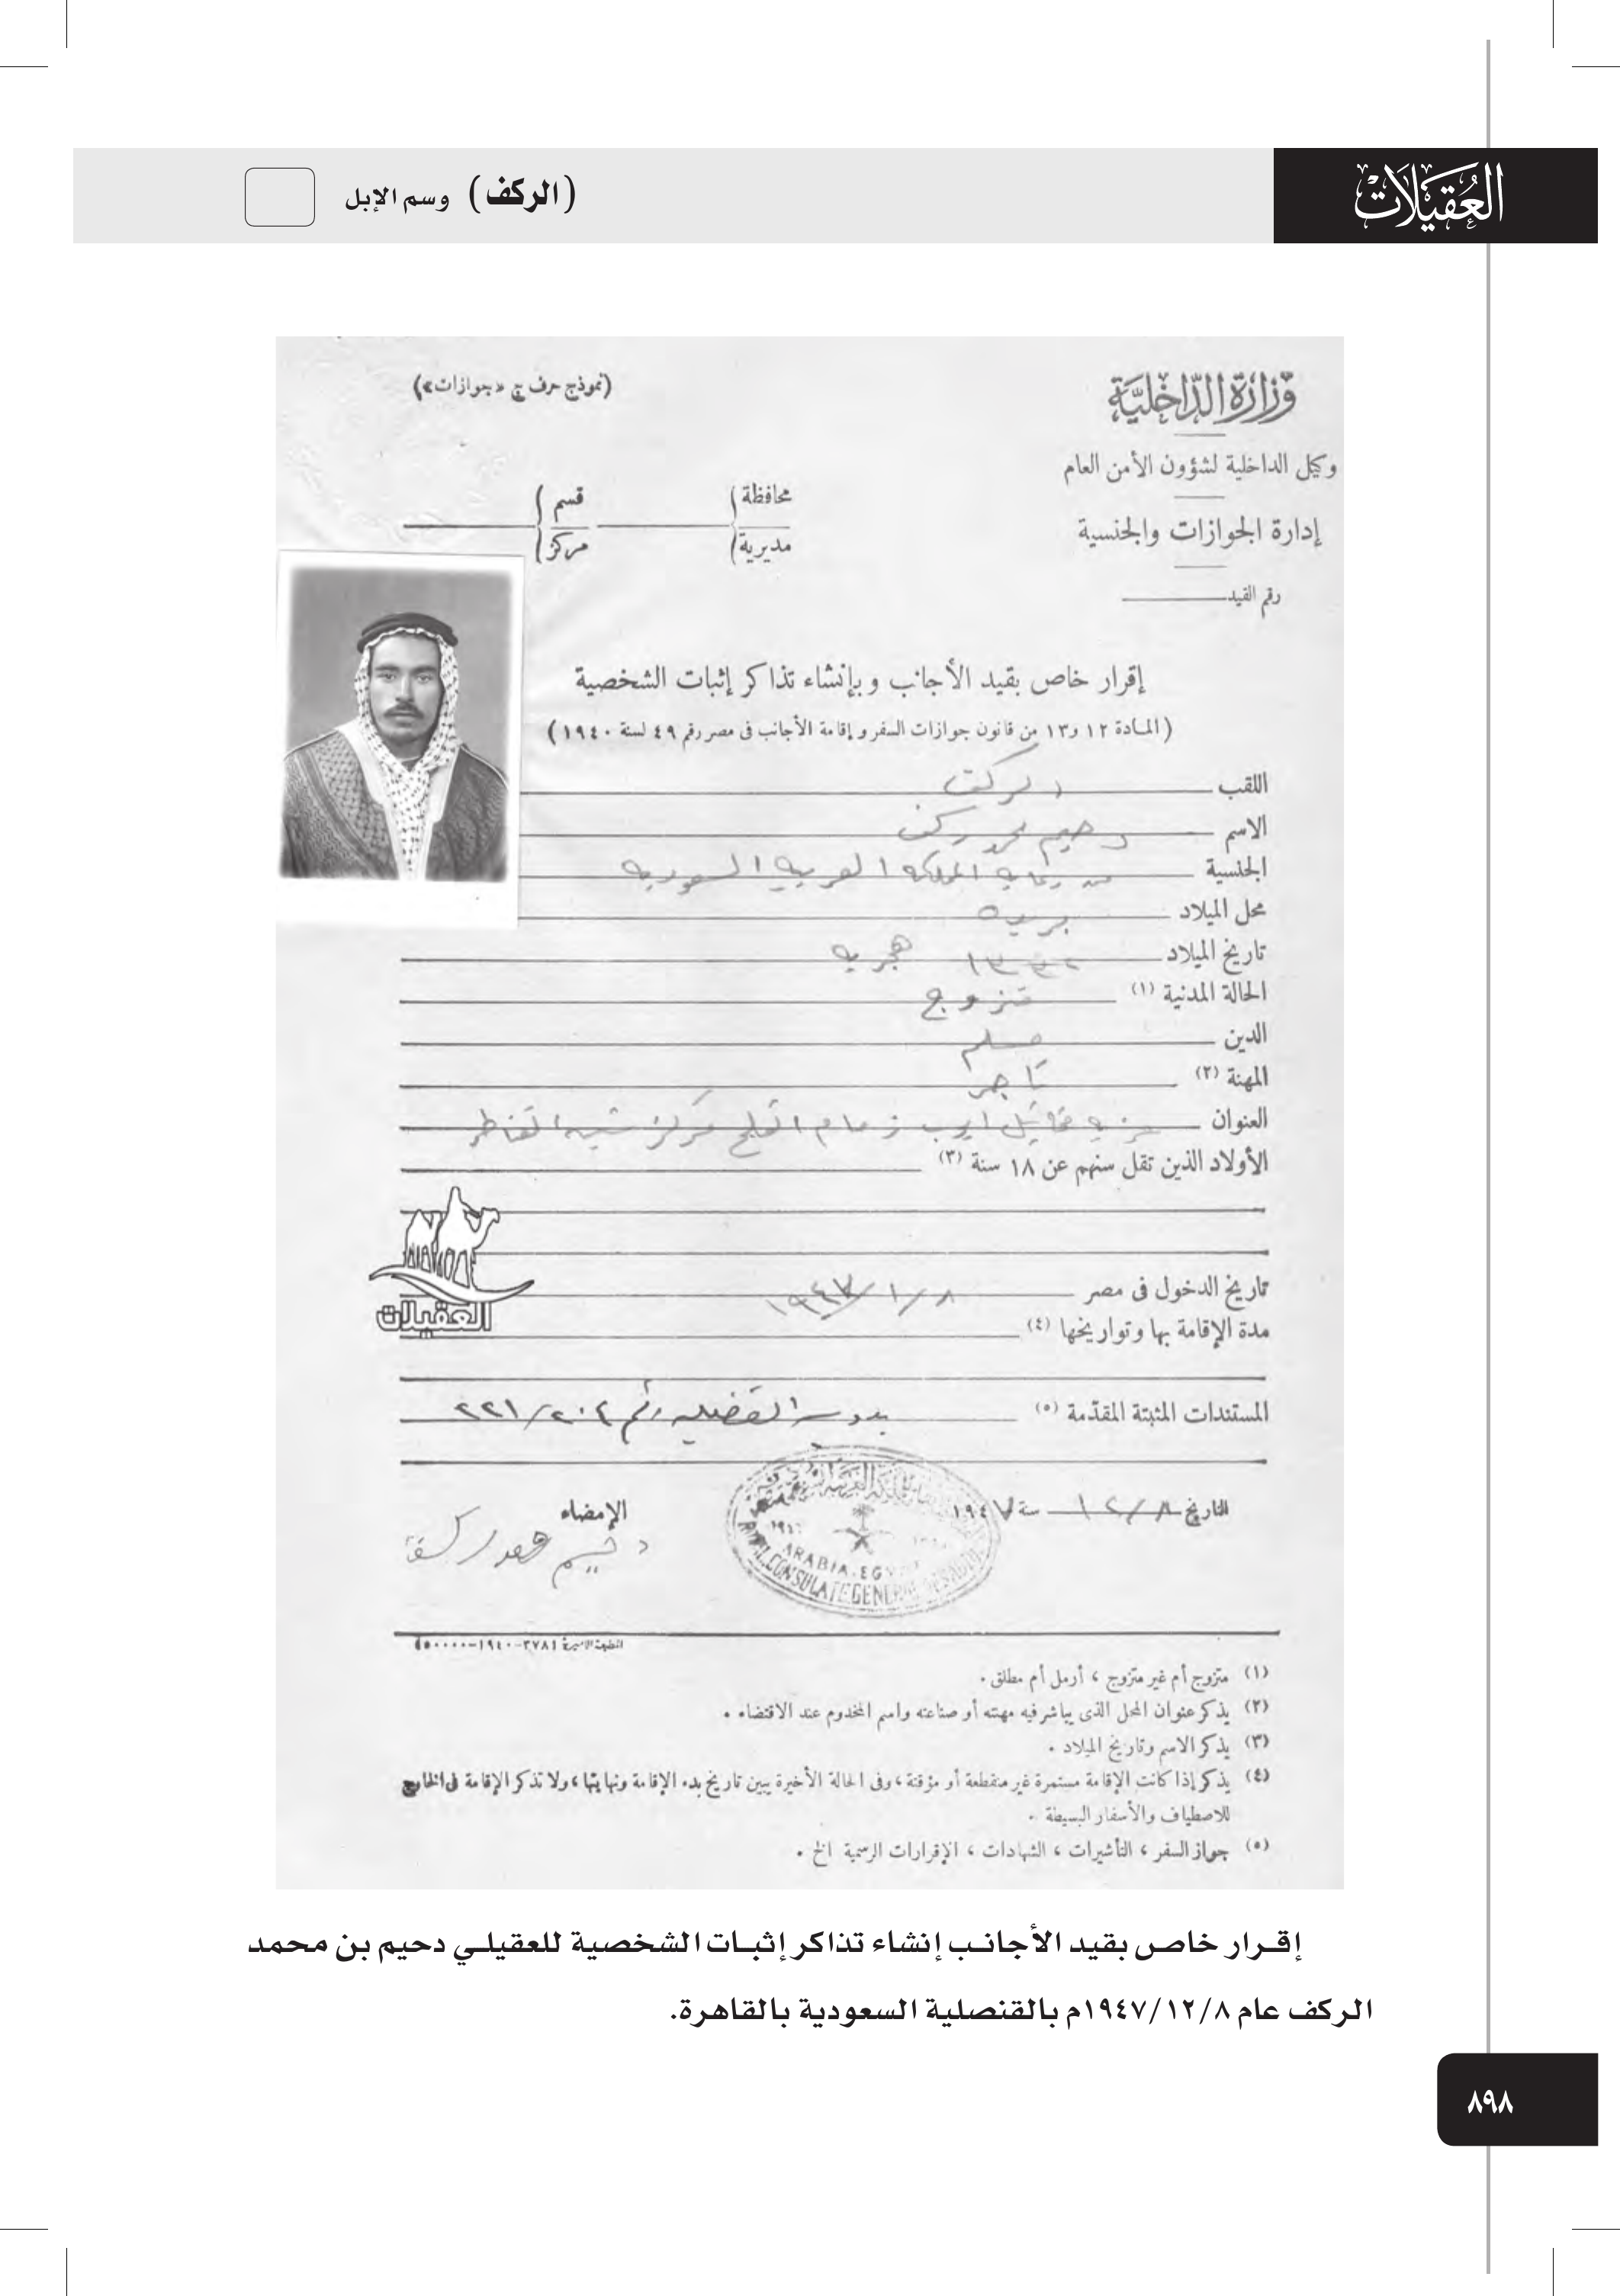 العُقيلات
(الركف) وسم الإبل
(نموذج حرف ج «جوازات»)
وزارة الداخلية
وكيل الداخلية لشؤون الأمن العام
إدارة الجوازات والجنسية
رقم القيد
محافظة
مديرية
قسم
مركز
إقرار خاص بقيد الأجانب وبإنشاء تذاكر إثبات الشخصية
(المادة ١٢ و١٣ من قانون جوازات السفر وإقامة الأجانب فى مصر رقم ٤٩ لسنة ١٩٤٠)
اللقب الركف
الاسم دحيم محمد ركف
الجنسية من رعاية المملكة العربية السعودية
محل الميلاد بريده
تاريخ الميلاد ١٣٣٢ هجريه
الحالة المدنية (١) متزوج
الدين مسلم
المهنة (٢) تاجر
العنوان عزبه ميخائيل زمام القلج مركز شبين القناطر
الأولاد الذين تقل سنهم عن ١٨ سنة (٣)
العقيلات
تاريخ الدخول فى مصر ٨/١/١٩٤٧
مدة الإقامة بها وتواريخها (٤)
المستندات المثبتة المقدّمة (٥) القنصليه رقم ٢٢١/٢٠٤
التاريخ ٨/١٢ سنة ١٩٤٧
الإمضاء
دحيم محمد ركف
ARABIA. EGY
ROYAL CONSULATE GENERAL
المطبعة الاميرية ٣٧٨١-١٩٤٠-٥٠٠٠٠
(١) متزوج أم غير متزوج ، أرمل أم مطلق .
(٢) يذكر عنوان المحل الذى يباشر فيه مهنته أو صناعته واسم المخدوم عند الاقتضاء .
(٣) يذكر الاسم وتاريخ الميلاد .
(٤) يذكر إذا كانت الإقامة مستمرة غير منقطعة أو مؤقتة ، وفى الحالة الأخيرة يبين تاريخ بدء الإقامة ونهايتها ، ولا تذكر الإقامة فى الخارج
للاصطياف والأسفار البسيطة .
(٥) جواز السفر ، التأشيرات ، الشهادات ، الإقرارات الرسمية الخ .
إقـرار خاص بقيد الأجانـب إنشاء تذاكر إثبـات الشخصية للعقيلـي دحيم بن محمد
الركف عام ١٩٤٧/١٢/٨م بالقنصلية السعودية بالقاهرة.
٨٩٨